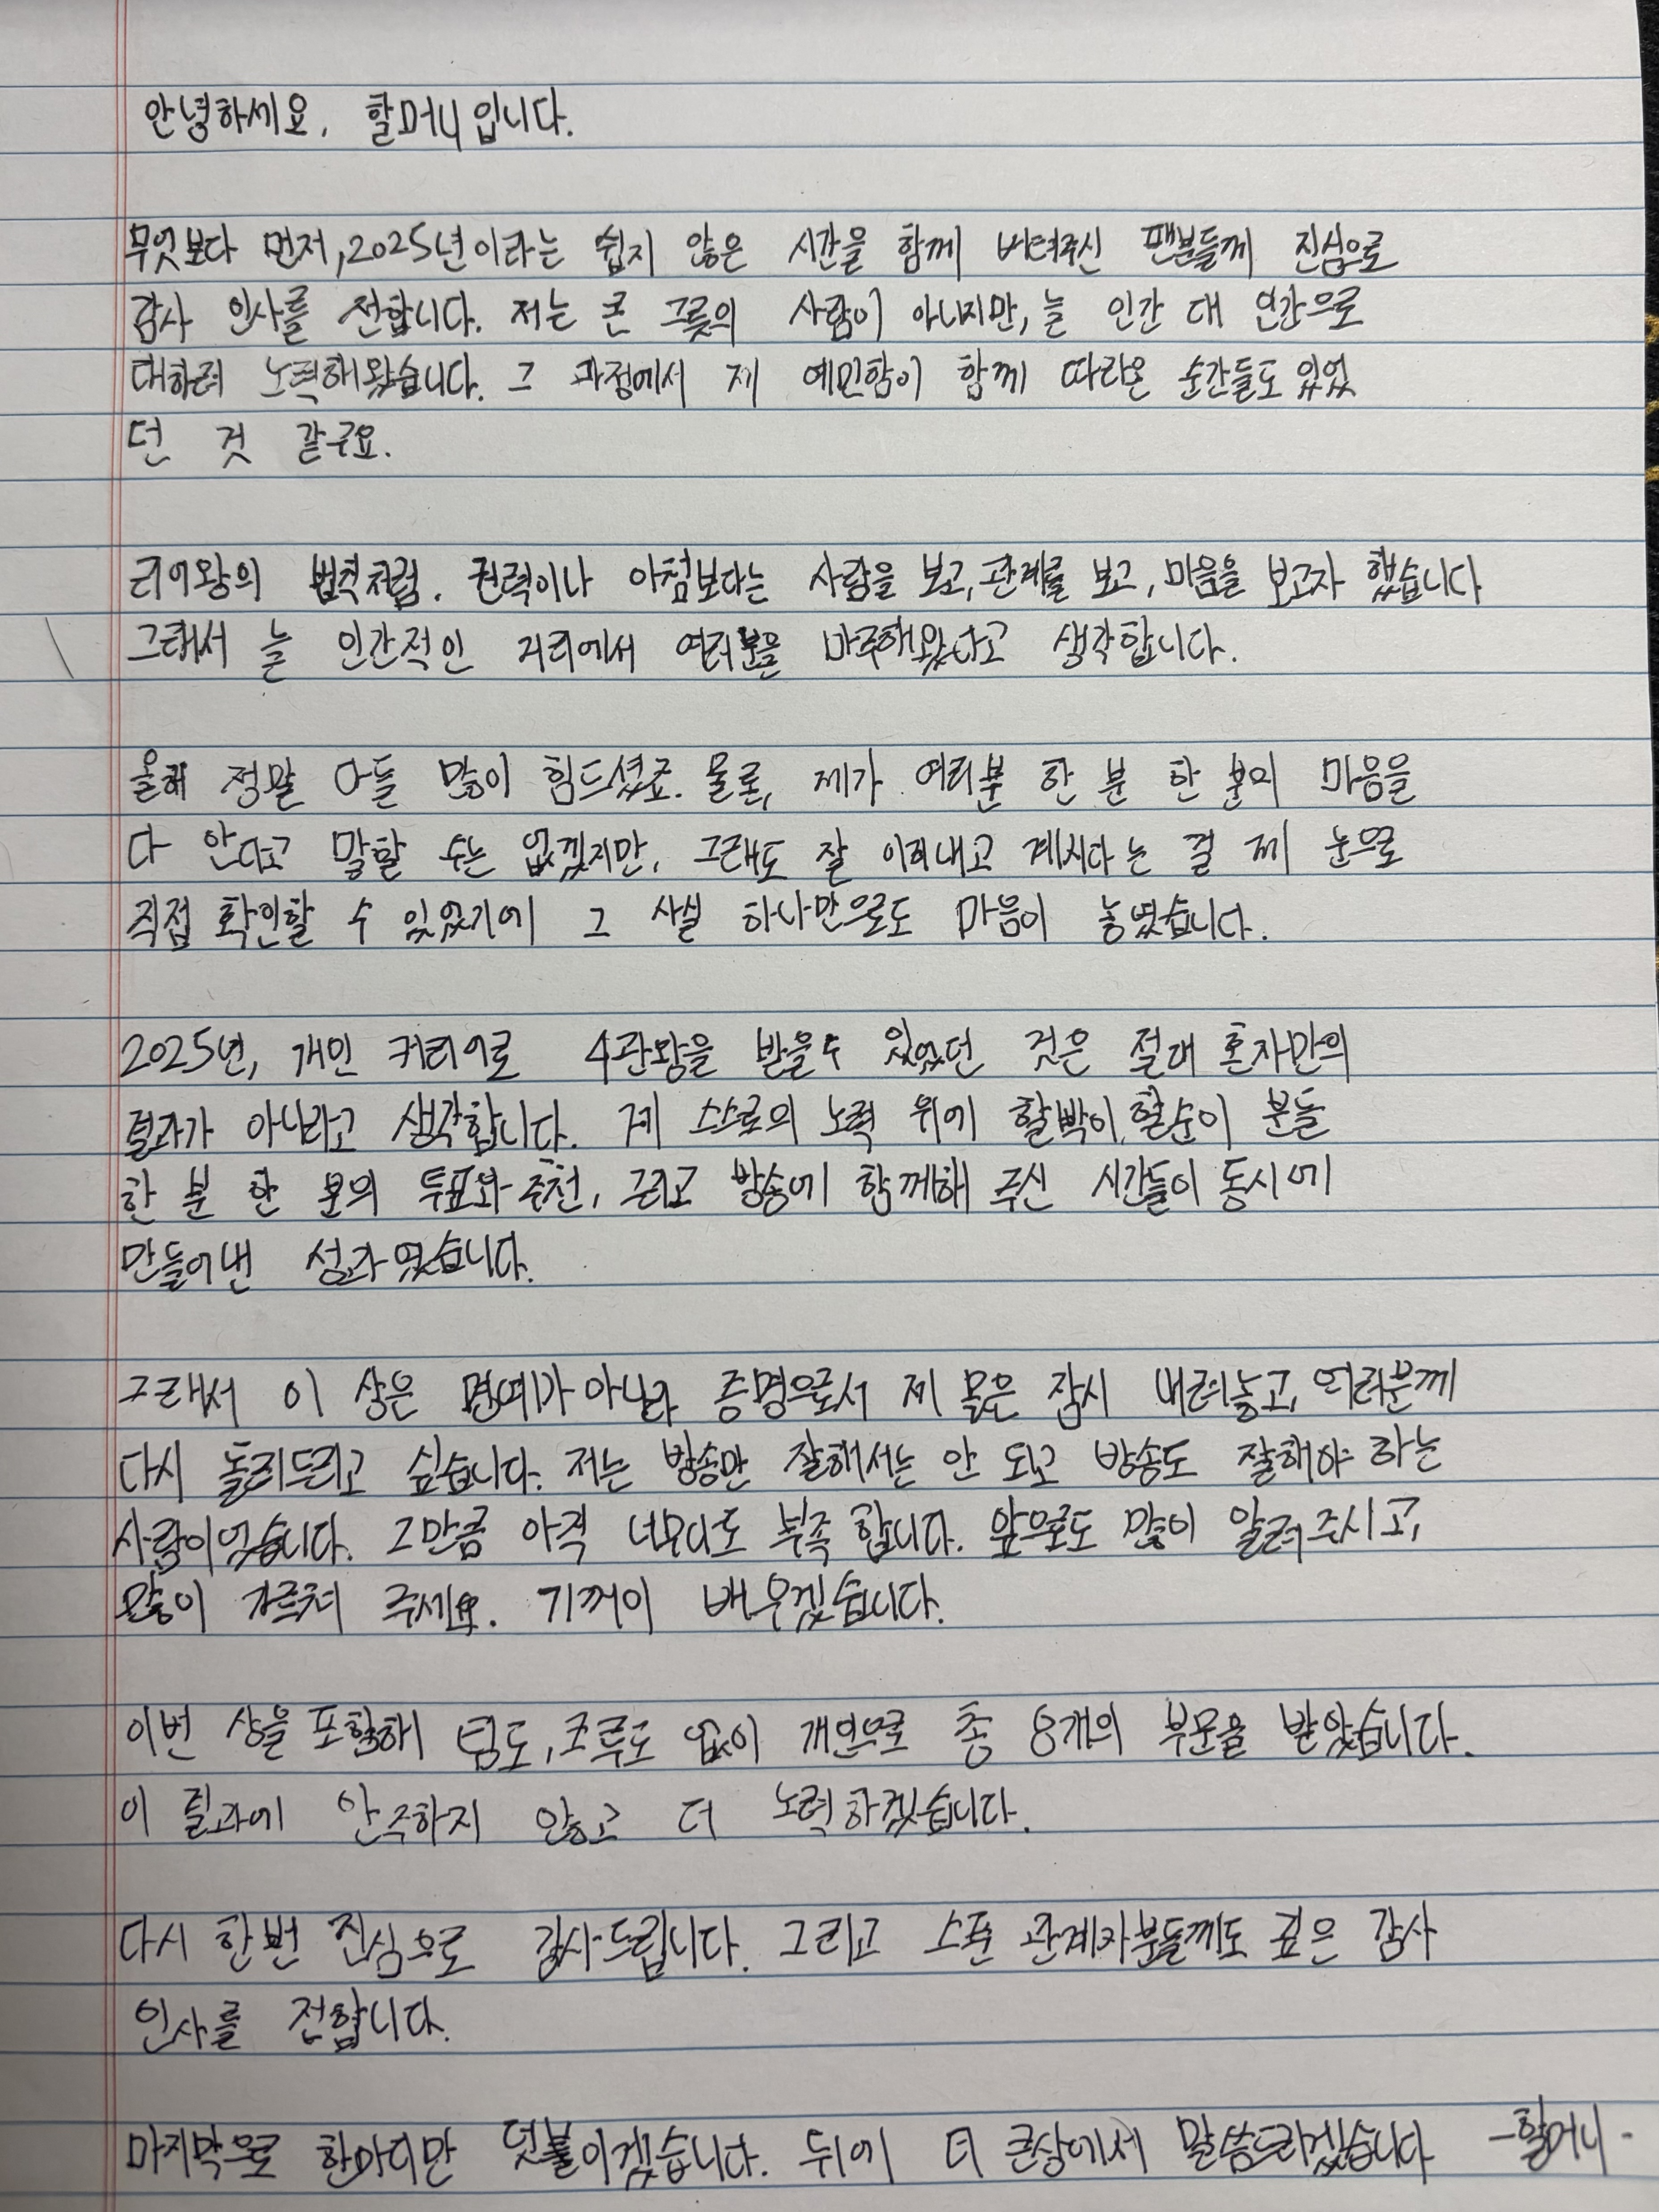 안녕하세요, 할머니입니다.
무엇보다 먼저, 2025년이라는 쉽지 않은 시간을 함께 버텨주신 팬분들께 진심으로
감사 인사를 전합니다. 저는 큰 그릇의 사람이 아니지만, 늘 인간 대 인간으로
대하려 노력해왔습니다. 그 과정에서 제 예민함이 함께 따라온 순간들도 있었
던 것 같구요.
리어왕의 법칙처럼. 권력이나 아첨보다는 사람을 보고, 관계를 보고, 마음을 보고자 했습니다
그래서 늘 인간적인 거리에서 여러분을 마주해왔다고 생각합니다.
올해 정말 다들 많이 힘드셨죠. 물론, 제가 여러분 한 분 한 분의 마음을
다 안다고 말할 수는 없겠지만, 그래도 잘 이겨내고 계시다는 걸 제 눈으로
직접 확인할 수 있었기에 그 사실 하나만으로도 마음이 놓였습니다.
2025년, 개인 커리어로 4관왕을 받을수 있었던 것은 절대 혼자만의
결과가 아니라고 생각합니다. 제 스스로의 노력 위에 할빡이, 할순이 분들
한 분 한 분의 투표와 추천, 그리고 방송에 함께해 주신 시간들이 동시에
만들어낸 성과였습니다.
그래서 이 상은 명예가 아니라 증명으로서 제 몫은 잠시 내려놓고, 여러분께
다시 돌려드리고 싶습니다. 저는 방송만 잘해서는 안 되고 방송도 잘해야 하는
사람이었습니다. 그만큼 아직 너무나도 부족합니다. 앞으로도 많이 알려주시고,
많이 가르쳐 주세요. 기꺼이 배우겠습니다.
이번 상을 포함해 팀도, 크루도 없이 개인으로 총 8개의 부문을 받았습니다.
이 결과에 안주하지 않고 더 노력하겠습니다.
다시 한번 진심으로 감사드립니다. 그리고 스푼 관계자분들께도 깊은 감사
인사를 전합니다.
마지막으로 한마디만 덧붙이겠습니다. 뒤에 더 큰상에서 말씀드리겠습니다 -할머니-